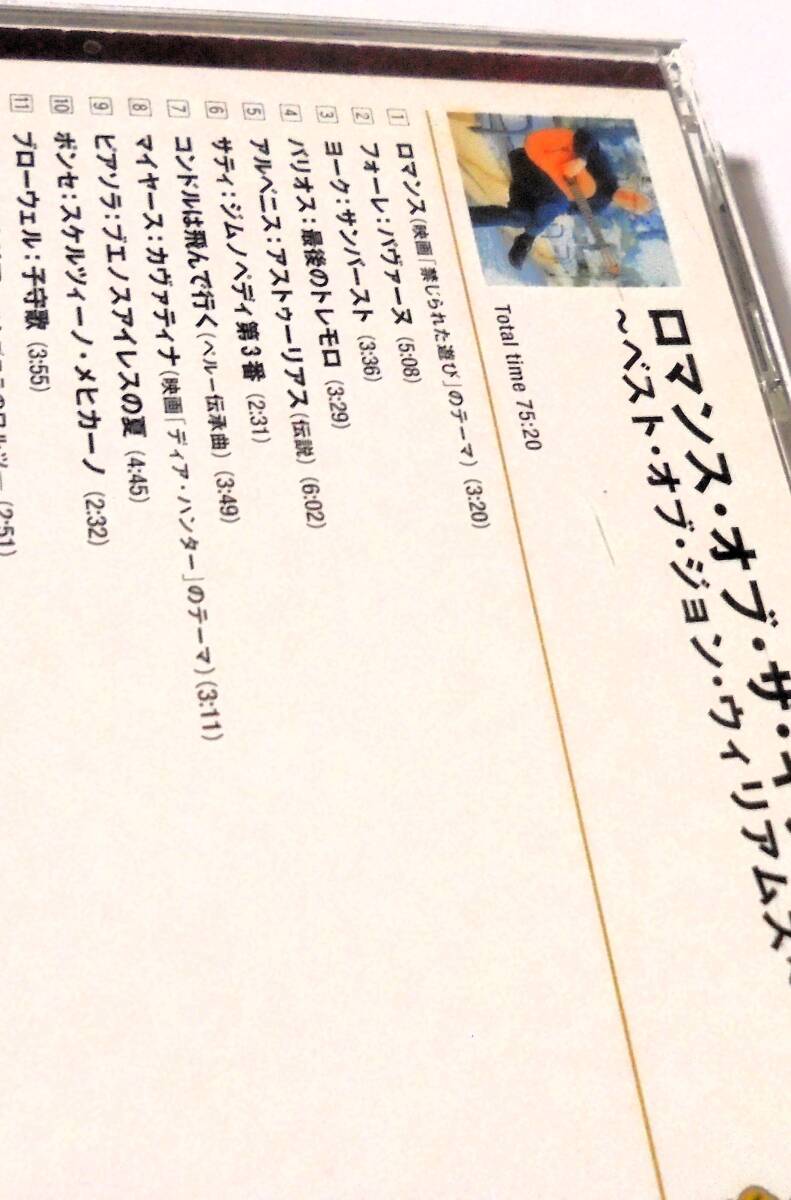 ロマンス・オブ・ザ・ギ
〜ベスト・オブ・ジョン・ウィリアムズ
Total time 75:20
1 ロマンス(映画「禁じられた遊び」のテーマ) (3:20)
2 フォーレ:パヴァーヌ (5:08)
3 ヨーク:サンバースト (3:36)
4 バリオス:最後のトレモロ (3:29)
5 アルベニス:アストゥーリアス(伝説) (6:02)
6 サティ:ジムノペディ第3番 (2:31)
7 コンドルは飛んで行く(ペルー伝承曲) (3:49)
8 マイヤース:カヴァティナ(映画「ディア・ハンター」のテーマ) (3:11)
9 ピアソラ:ブエノスアイレスの夏 (4:45)
10 ポンセ:スケルツィーノ・メヒカーノ (2:32)
11 ブローウェル:子守歌 (3:55)
(2:51)